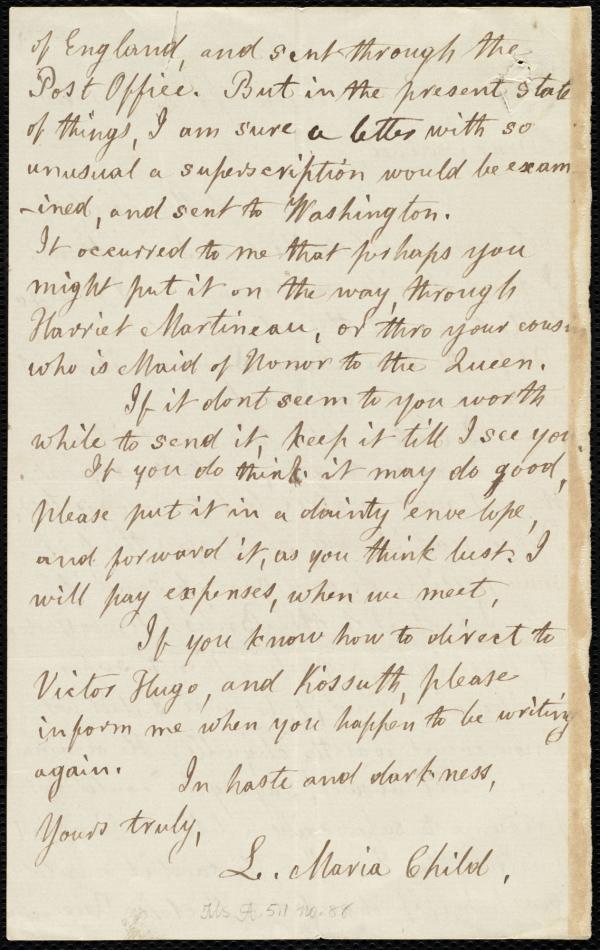 of England, and sent through the
Post Office. But in the present state
of things, I am sure a letter with so
unusual a superscription would be exam
-ined, and sent to Washington.
It occurred to me that perhaps you
might put it on the way, through
Harriet Martineau, or thro your cousin
who is Maid of Honor to the Queen.
If it dont seem to you worth
while to send it, keep it till I see you.
If you do think it may do good,
please put it in a dainty envelope,
and forward it, as you think best. I
will pay expenses, when we meet,
If you know how to direct to
Victor Hugo, and Kossuth, please
inform me when you happen to be writing
again.
In haste and darkness,
Yours truly,
L. Maria Child.
Ms A. 5.11 no. 88